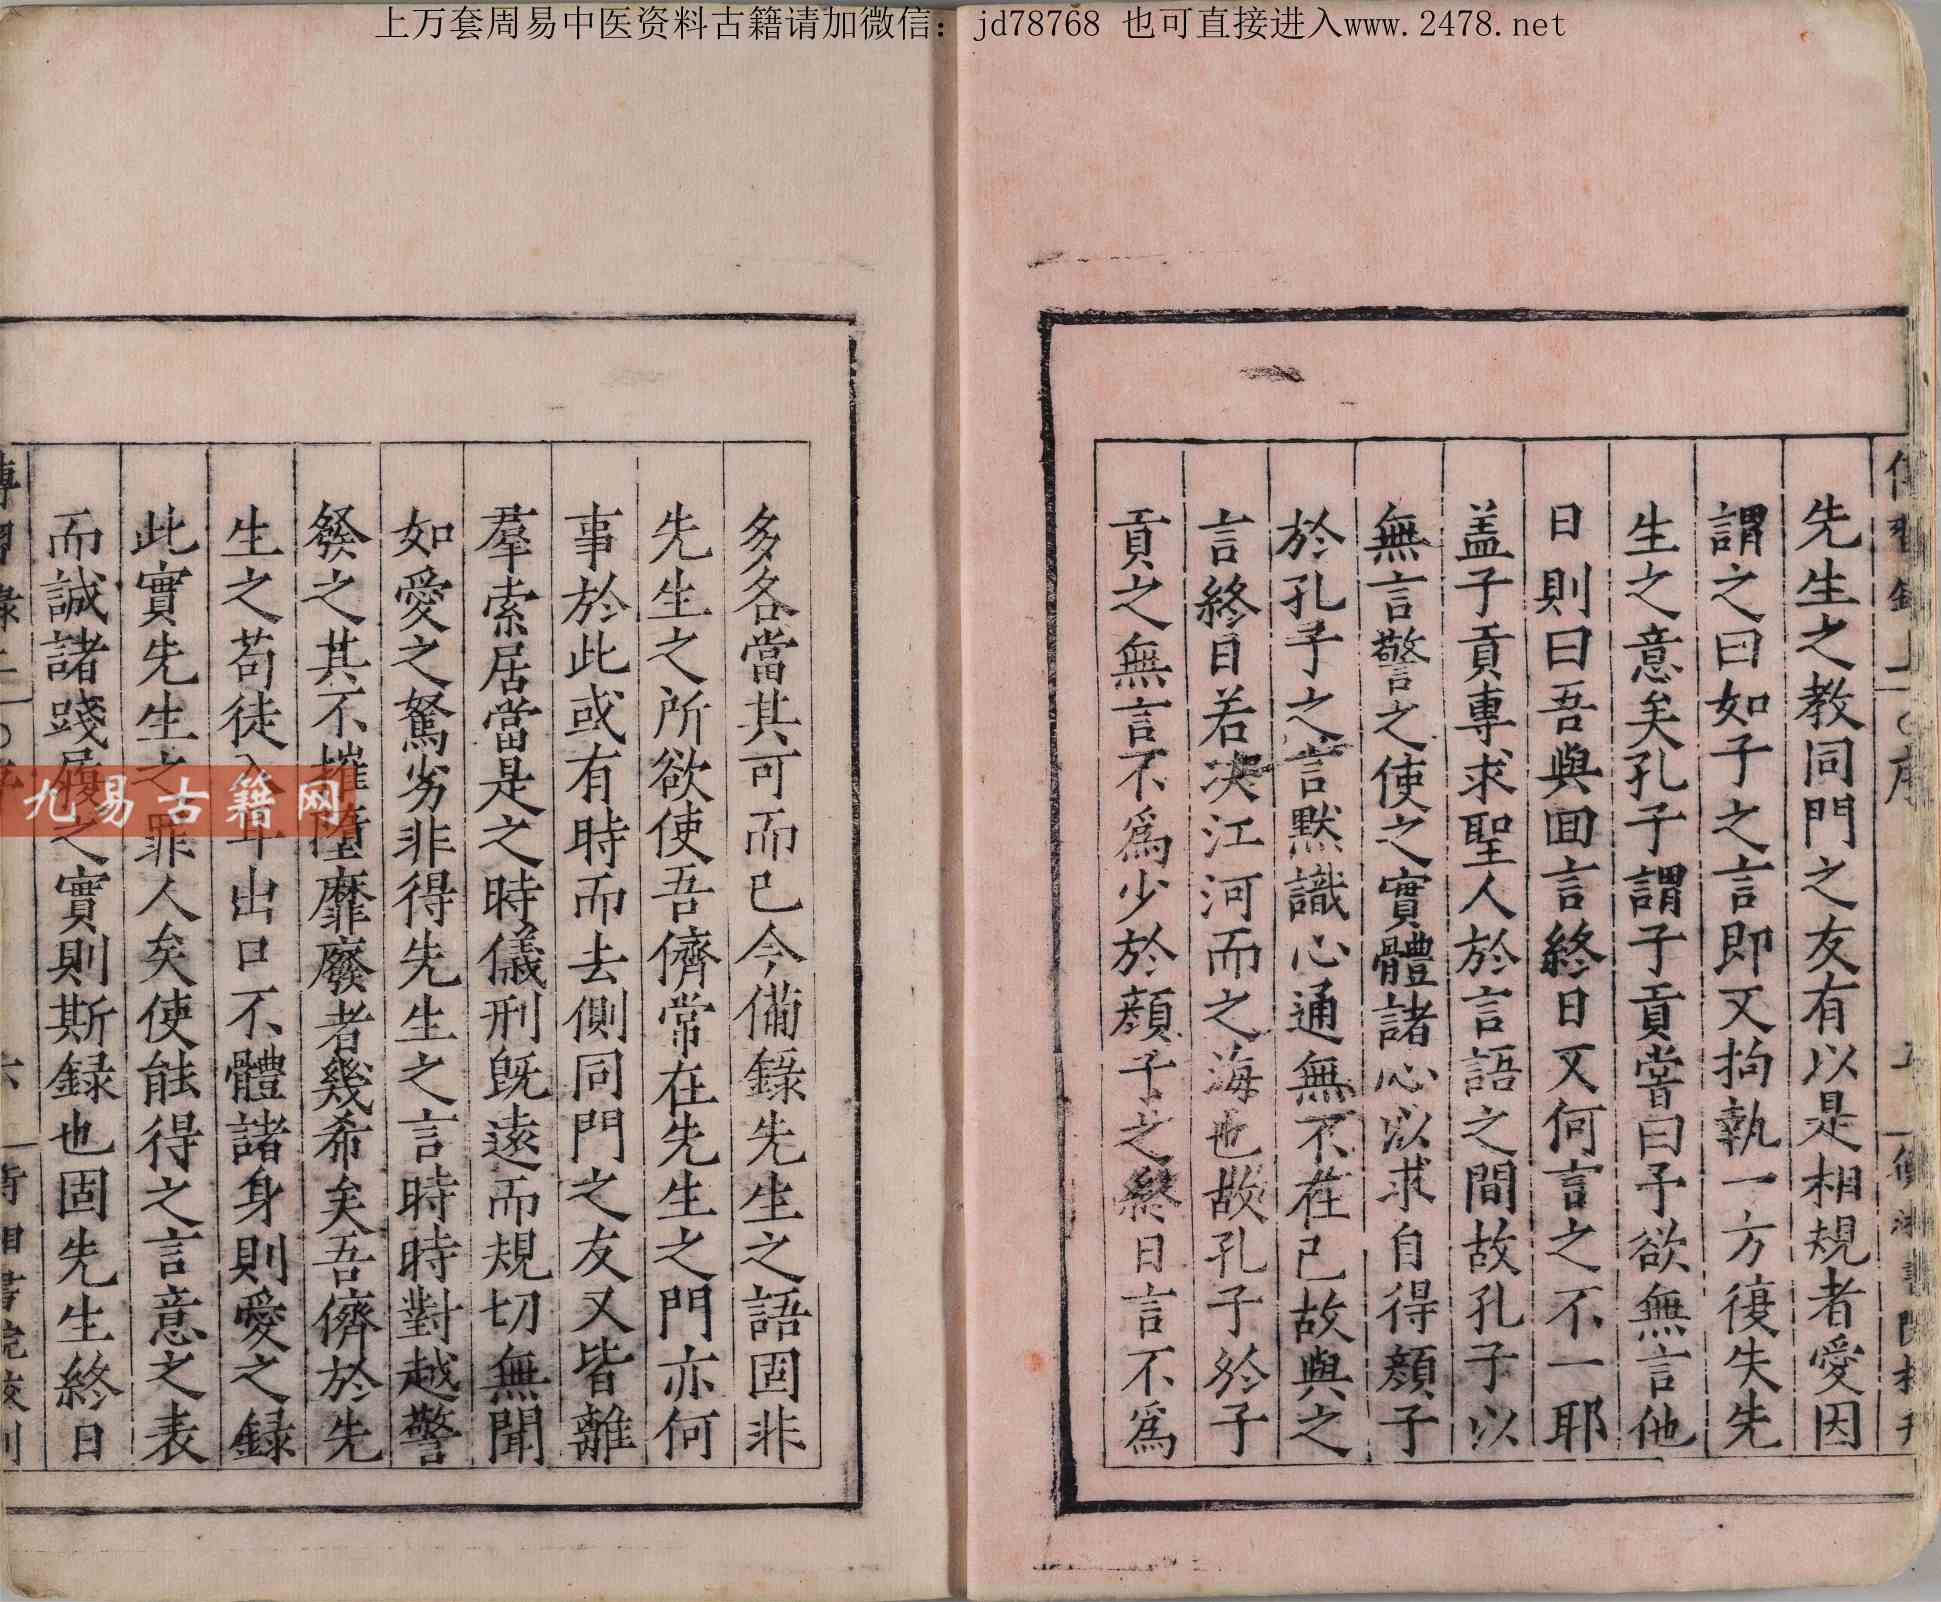 上万套周易中医资料古籍请加微信：jd78768 也可直接进入www.2478.net
先生之教同門之友有以是相規者愛因
謂之曰如子之言即又拘執一方復失先
生之意矣孔子謂子貢嘗曰予欲無言他
日則曰吾與回言終日又何言之不一耶
盖子貢專求聖人於言語之間故孔子以
無言警之使之實體諸心以求自得顔子
於孔子之言默識心通無不在己故與之
言終日若决江河而之海也故孔子於子
貢之無言不爲少於顔子之終日言不爲
多各當其可而已今備錄先生之語固非
先生之所欲使吾儕常在先生之門亦何
事於此或有時而去側同門之友又皆離
羣索居當是之時儀刑旣遠而規切無聞
如愛之駑劣非得先生之言時時對越警
發之其不摧墮靡廢者幾希矣吾儕於先
生之苟徒入耳出口不體諸身則愛之録
此實先生之罪人矣使能得之言意之表
而誠諸踐履之實則斯録也固先生終日
九易古籍网